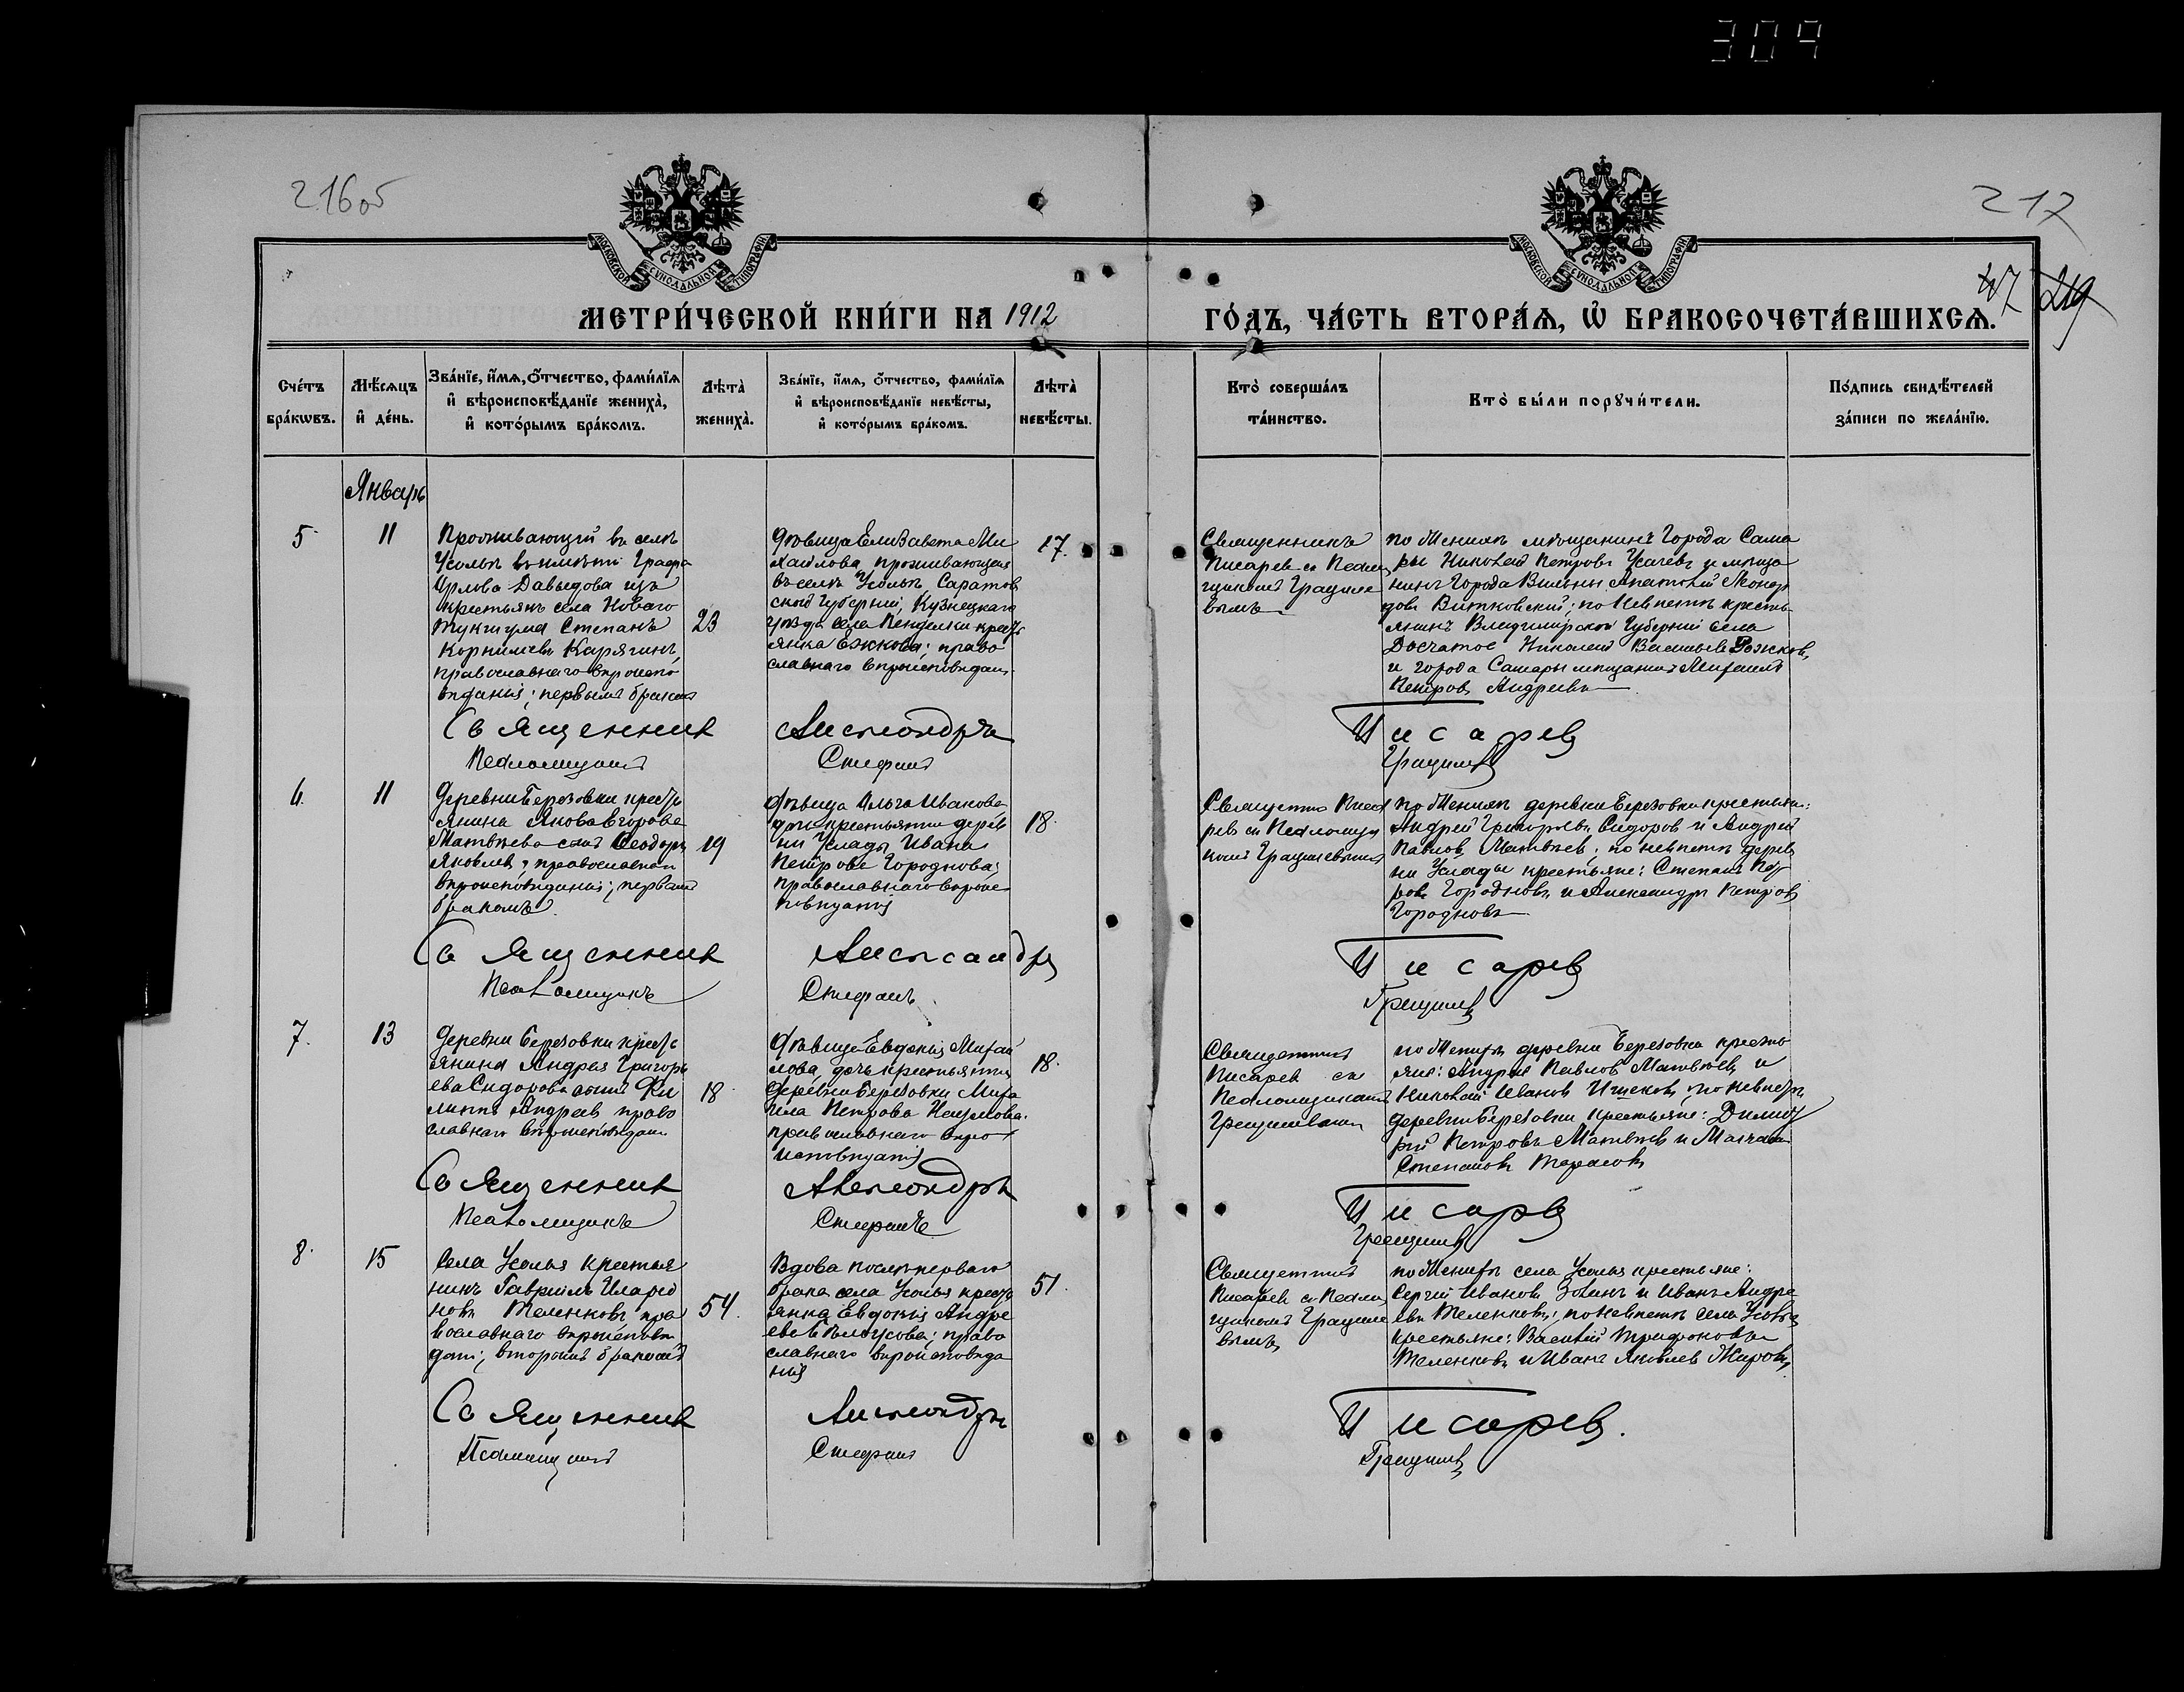 309
216об
217
МОСКОВСКОЙ СѴНОДАЛЬНОЙ ТИПОГРАФІИ
МОСКОВСКОЙ СѴНОДАЛЬНОЙ ТИПОГРАФІИ
47 219
МЕТРИ́ЧЕСКОЙ КНИ́ГИ НА 1912 ГО́ДЪ, ЧА́СТЬ ВТОРА́Ѧ, Ѡ҆ БРАКОСОЧЕТА́ВШИХСѦ.
Сче́тъ бра́кѡвъ.
Мѣ́сѧцъ и҆ де́нь.
Зва́нїе, и҆́мѧ, ѻ҆́тчество, фами́лїѧ
и҆ вѣроисповѣ́данїе жениха̀,
и҆ кото́рымъ бра́комъ.
Лѣта̀ жениха̀.
Зва́нїе, и҆́мѧ, ѻ҆́тчество, фами́лїѧ
и҆ вѣроисповѣ́данїе невѣ́сты,
и҆ кото́рымъ бра́комъ.
Лѣта̀ невѣ́сты.
Кто̀ соверша́лъ
та́инство.
Кто̀ бы́ли порꙋчи́тели.
По́дпись свидѣ́телей
за́писи по жела́нїю.
Январь
5
11
Проживающій въ селѣ
Усольѣ въ имѣніи Графа
Орлова Давыдова изъ
крестьянъ села Новаго
Тукшума Степанъ
Корниліевъ Карягинъ,
православнаго вѣроиспо
вѣданія; первымъ бракомъ
23
Дѣвица Елизавета Ми
хайлова, проживающая
въ селѣ Усольѣ, Саратов
ской Губерніи, Кузнецкаго
уѣзда села Пенделки кресть
янка Ежкова; право
славнаго вѣроисповѣдан.
17.
Священникъ
Писаревъ съ Псалом
щикомъ Грацилe
вымъ
по женихѣ мѣщанинъ Города Сама
ры Николай Петровъ Усачевъ и мѣща
нинъ Города Вильны Анатолій
Витковскій; по невѣстѣ кресть
янинъ Владимірской Губерніи села
Досчатое Николай Васильевъ Рожковъ,
и города Самары мѣщанинъ Михаилъ
Петровъ Андреевъ
Священник Александръ Писарев
Псаломщикъ Стефанъ
6.
11
Деревни Березовки кресть
янина Якова
Матвѣева сынъ Ѳеодоръ
Яковлевъ, православнаго
вѣроисповѣданія; первымъ
бракомъ
19
Дѣвица Ольга Иванова
дочь крестьянина дерев
ни Услады Ивана
Петрова Городнова;
православнаго вѣроис
повѣданія
18.
Священникъ Писа
ревъ съ Псаломщи
комъ
по женихѣ деревни Березовки крестьяне:
Андрей Григорьевъ Сидоровъ и Андрей
Павловъ Матвѣевъ; по невѣстѣ дерев
ни Услады крестьяне: Степанъ Пет
ровъ Городновъ и Александръ Петровъ
Городновъ
Священник Александръ Писарев
Псаломщикъ Стефанъ
7.
13
Деревни Березовки кресть
янина Андрея Григорь
ева Сидорова сынъ Фи
липпъ Андреевъ право
славнаго вѣроисповѣдан.
18
Дѣвица Евдокія Михай
лова, дочь крестьянина
деревни Березовки Миха
ила Петрова Наумова.
православнаго вѣро
исповѣданія
18.
Священникъ
Писаревъ съ
Псаломщикомъ
по женихѣ деревни Березовки кресть
яне: Андрей Павловъ Матвѣевъ и
Николай Ивановъ; по невѣстѣ
деревни Березовки крестьяне: Димит
рій Петровъ Матвѣевъ и
Степановъ Тарасовъ
Священник Александръ Писарев
Псаломщикъ Стефанъ
8.
15
Села Усолья крестья
нинъ Гавріилъ Иларіо
новъ Теленковъ, пра
вославнаго вѣроисповѣ
дан; вторымъ бракомъ
54.
Вдова послѣ перваго
брака села Усолья кресть
янка Евдокія Андре
ева Бѣлоусова; право
славнаго вѣроисповѣда
нія
51.
Священникъ
Писаревъ съ Псалом
щикомъ
вымъ
по женихѣ села Усолья крестьяне:
Сергій Ивановъ Зотинъ и Иванъ Андре
евъ Теленковъ; по невѣстѣ села Усолья
крестьяне: Василій Трифоновъ
Теленковъ и Иванъ Яковлевъ Жировъ,
Священник Александръ Писарев.
Псаломщикъ Стефанъ